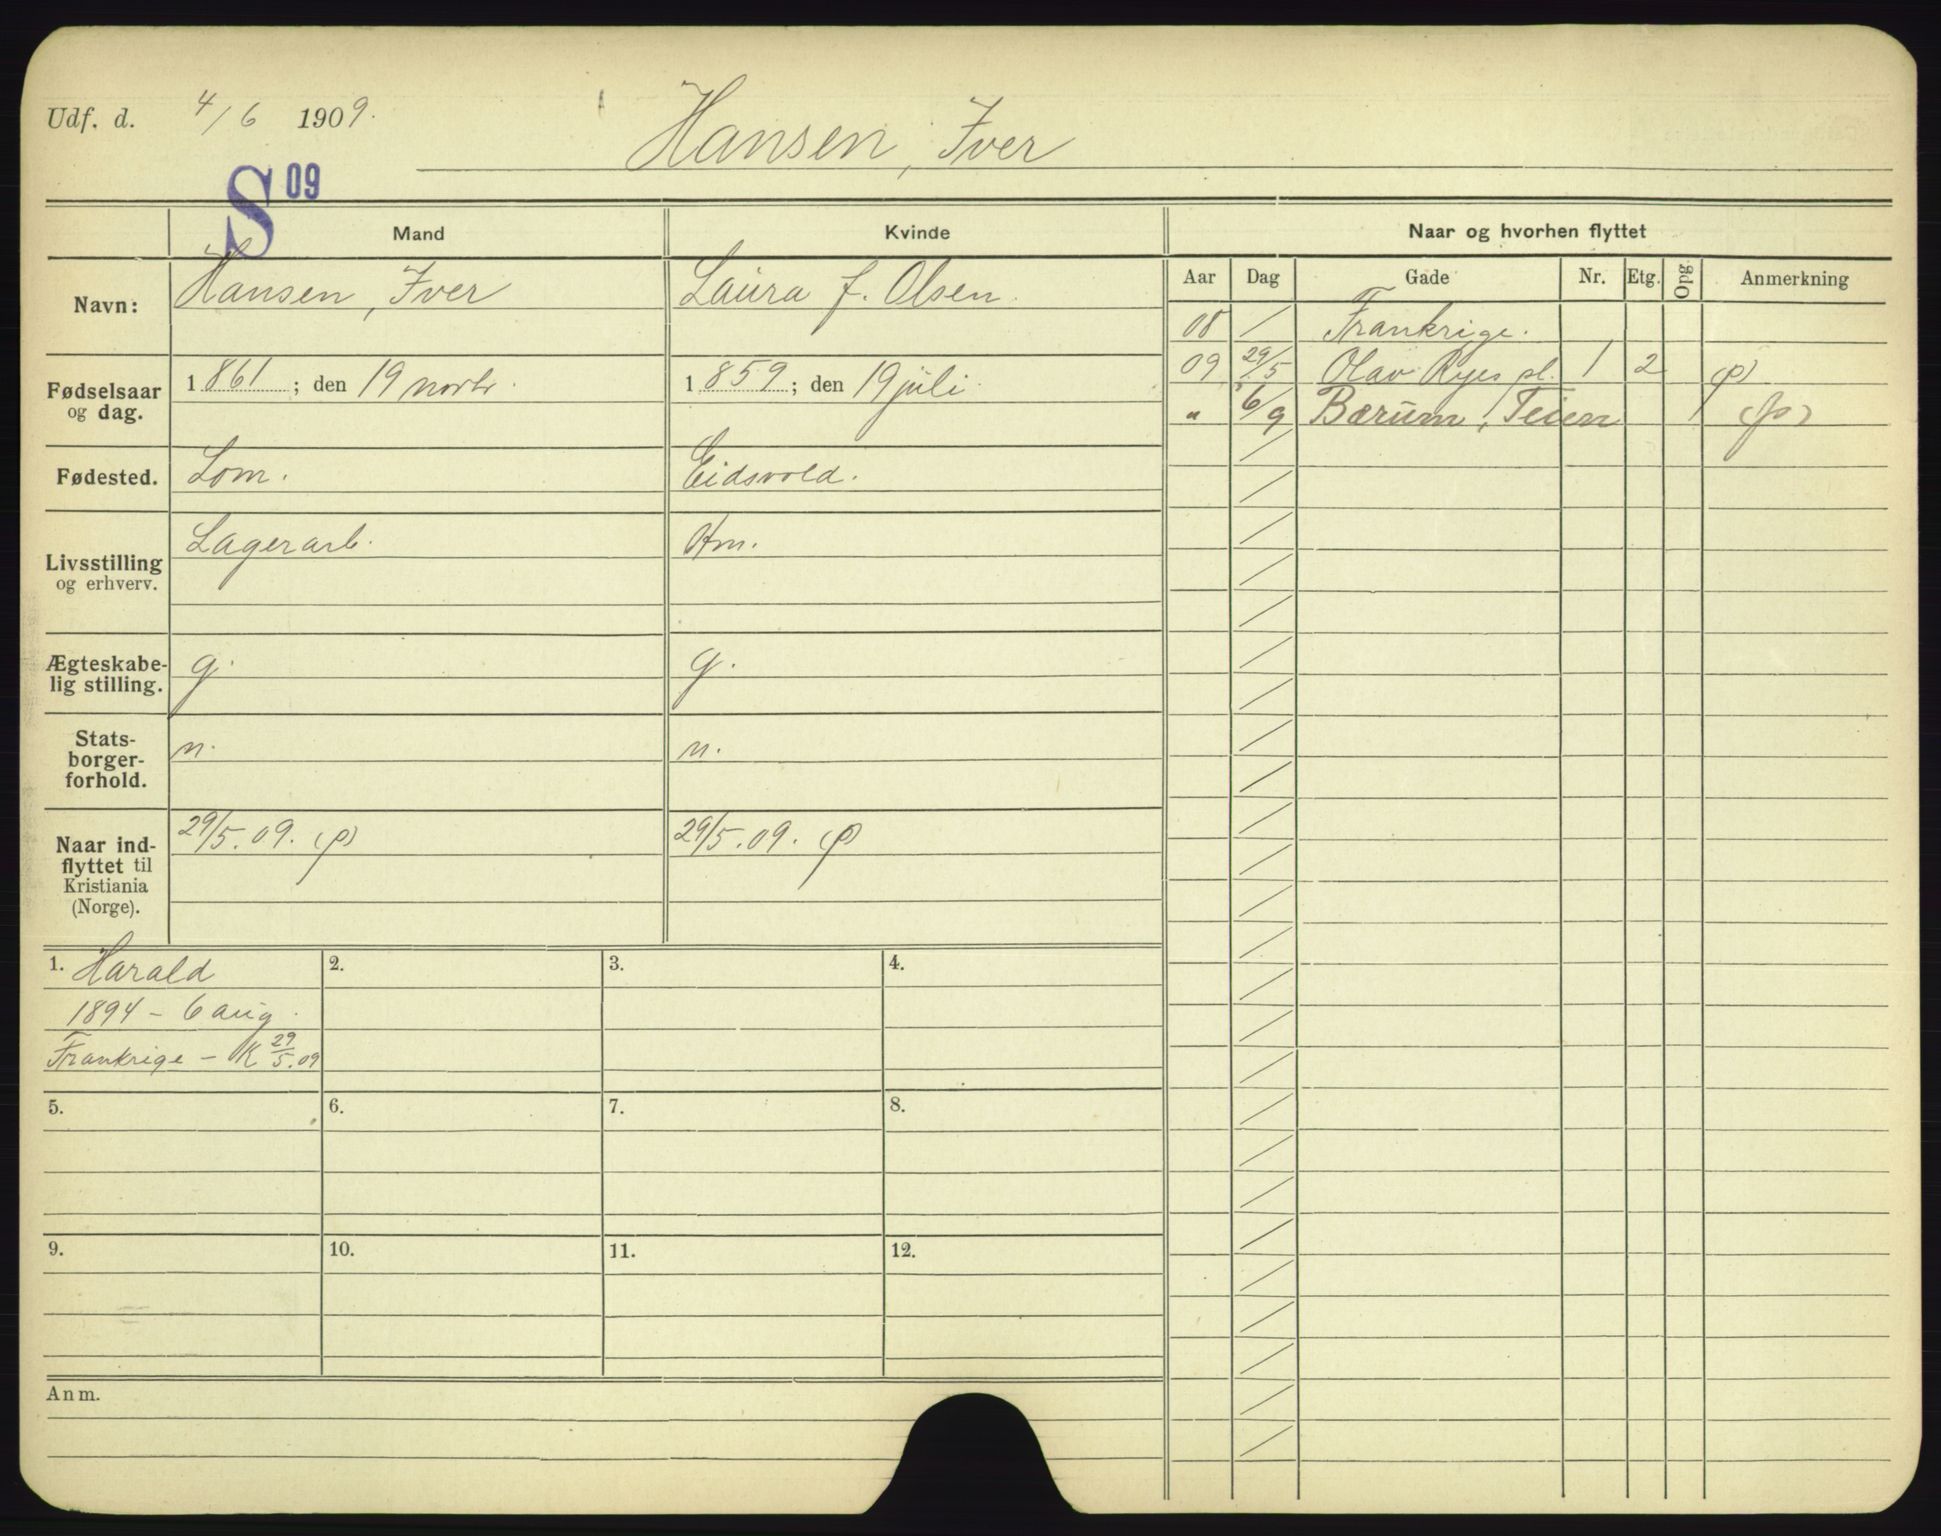 Udf. d. 4/6 1909.
Hansen, Iver
S 09
Mand Kvinde Naar og hvorhen flyttet
Aar Dag Gade Nr. Etg. Opg. Anmerkning
Navn: Hansen, Iver Laura f. Olsen.
08 / Frankrige.
09 29/5 Olav Ryes pl. 1 2 (p)
" 6/9 Bærum, Teien (p)
Fødselsaar og dag. 1861; den 19 novbr. 1859; den 19 juli.
Fødested. Lom. Eidsvold.
Livsstilling og erhverv. Lagerarb. Hm.
Ægteskabe-
lig stilling. g. g.
Stats-
borger-
forhold. n. n.
Naar ind-
flyttet til
Kristiania
(Norge). 29/5.09. (p) 29/5.09. (p)
1. Harald
1894 - 6 aug.
Frankrige - K 29/5.09
2.
3.
4.
5.
6.
7.
8.
9.
10.
11.
12.
Anm.